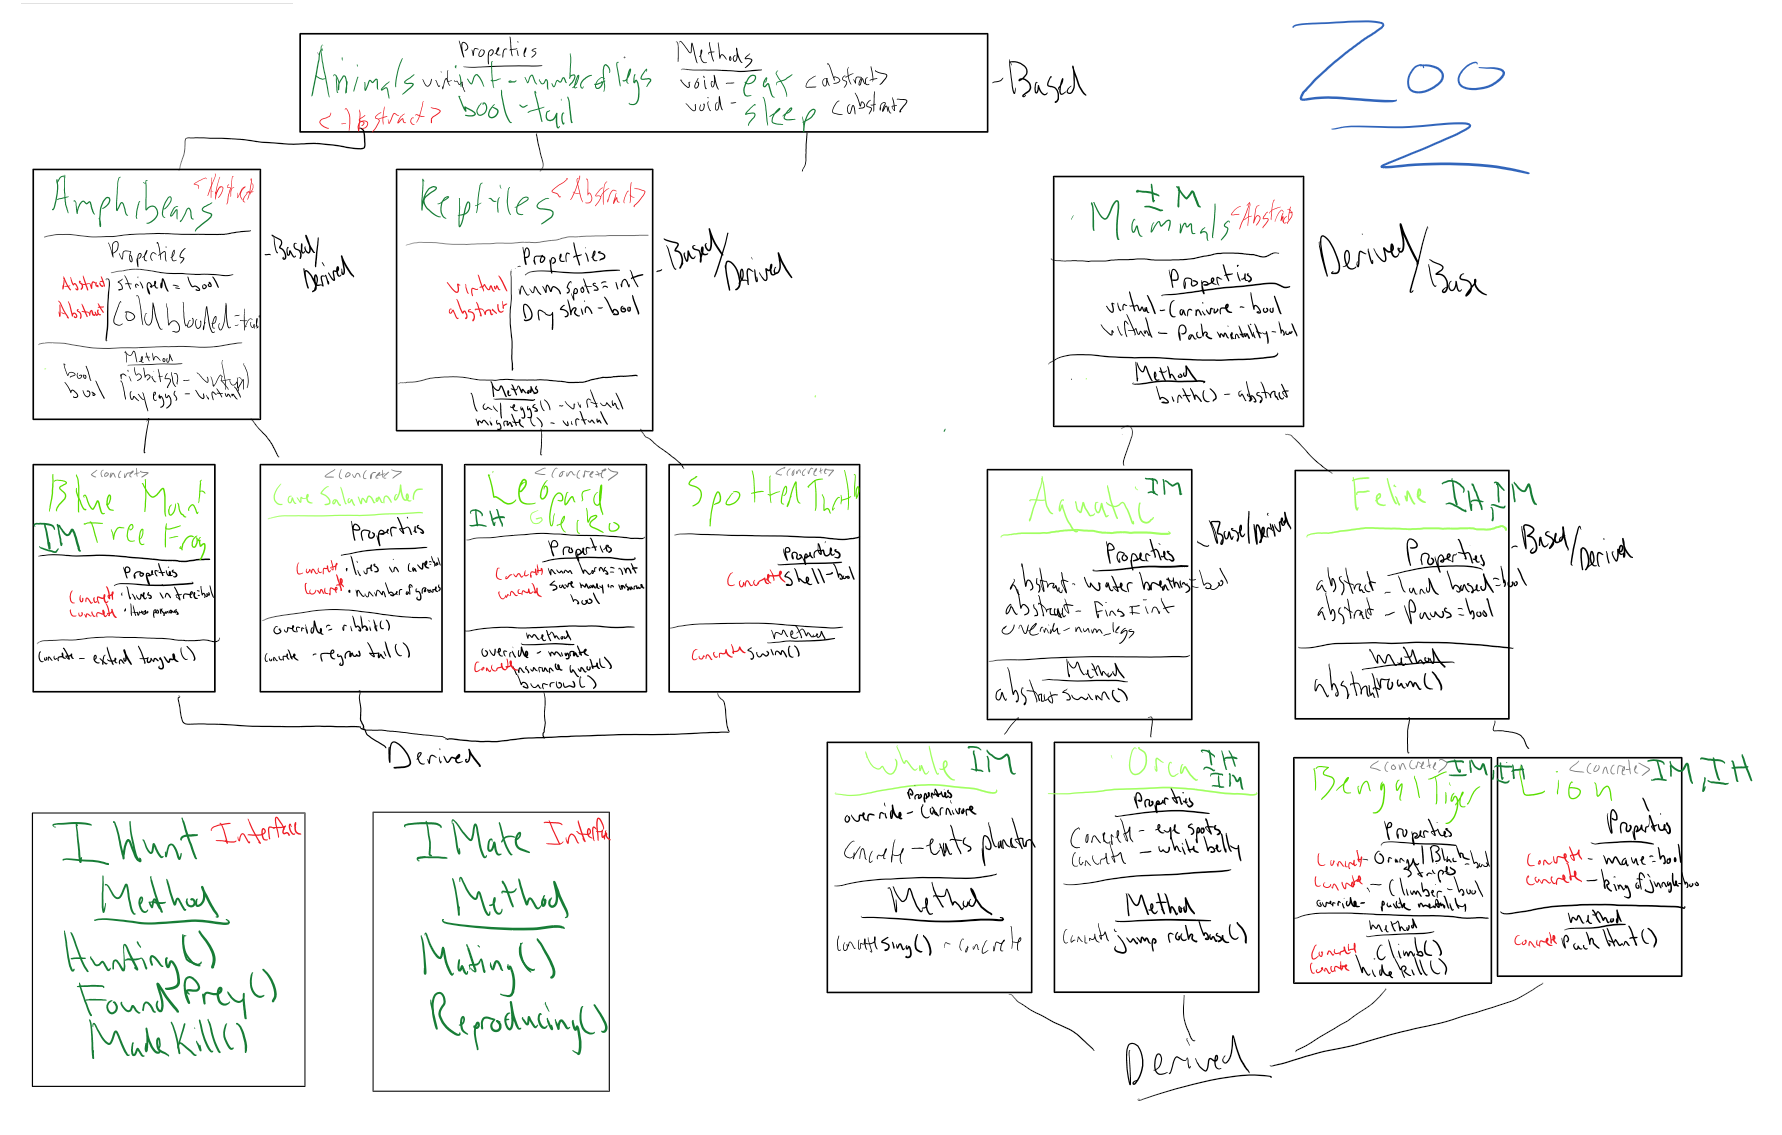 Zoo
Properties
Methods
Animals
int - number of legs
void - eat <abstract>
bool - tail
void - sleep <abstract>
- Based
Amphibeans <Abstract>
Properties
Abstract striped = bool
Abstract Cold blooded = true
Method
bool ribbits() - virtual
bool lay eggs - virtual
- Based/
Derived
Reptiles <Abstract>
Properties
virtual num spots = int
abstract Dry skin - bool
Methods
lay eggs() - virtual
migrate() - virtual
- Based/
Derived
IM
Mammals <Abstract>
Properties
virtual - Carnivore - bool
virtual - Pack mentality - bool
Method
birth() - abstract
Derived/
Base
<concrete>
Blue Mount
IM Tree Frog
Properties
Concrete • lives in tree = bool
Concrete
Concrete - extend tongue()
<concrete>
Cave Salamander
Properties
Concrete • lives in cave = bool
Concrete • number of grooves
override = ribbit()
Concrete - regrow tail()
<concrete>
Leopard
IH Gecko
Properties
Concrete num horns = int
Concrete Save money on insurance
bool
method
override - migrate
Concrete insurance quote()
burrow()
<concrete>
Spotted Turtle
Properties
Concrete shell - bool
method
Concrete swim()
Derived
IM
Aquatic
Properties
abstract - Water breathing = bool
abstract - Fins = int
override - num_legs
Method
abstract swim()
- Base/Derived
Feline IH, IM
Properties
abstract - land based = bool
abstract - Paws = bool
method
abstract roam()
- Based/
Derived
Whale IM
Properties
override - Carnivore
Concrete - eats plancton
Method
Concrete sing() - concrete
Orca IH
IM
Properties
Concrete - eye spots
Concrete - white belly
Method
Concrete jump rock base()
<concrete> IM, IH
Bengal Tiger
Properties
Concrete - Orange/Black = bool
stripes
Concrete - Climber - bool
override - pack mentality
method
Concrete Climb()
Concrete hide kill()
<concrete> IM, IH
Lion
Properties
Concrete - mane = bool
Concrete - king of jungle - bool
method
Concrete Pack Hunt()
Derived
I Hunt Interface
Method
Hunting()
Found Prey()
Made Kill()
I Mate Interfa
Method
Mating()
Reproducing()